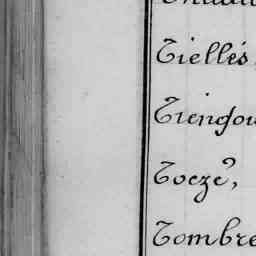 Tiellés
Tiengou
Toezé,
Tombre